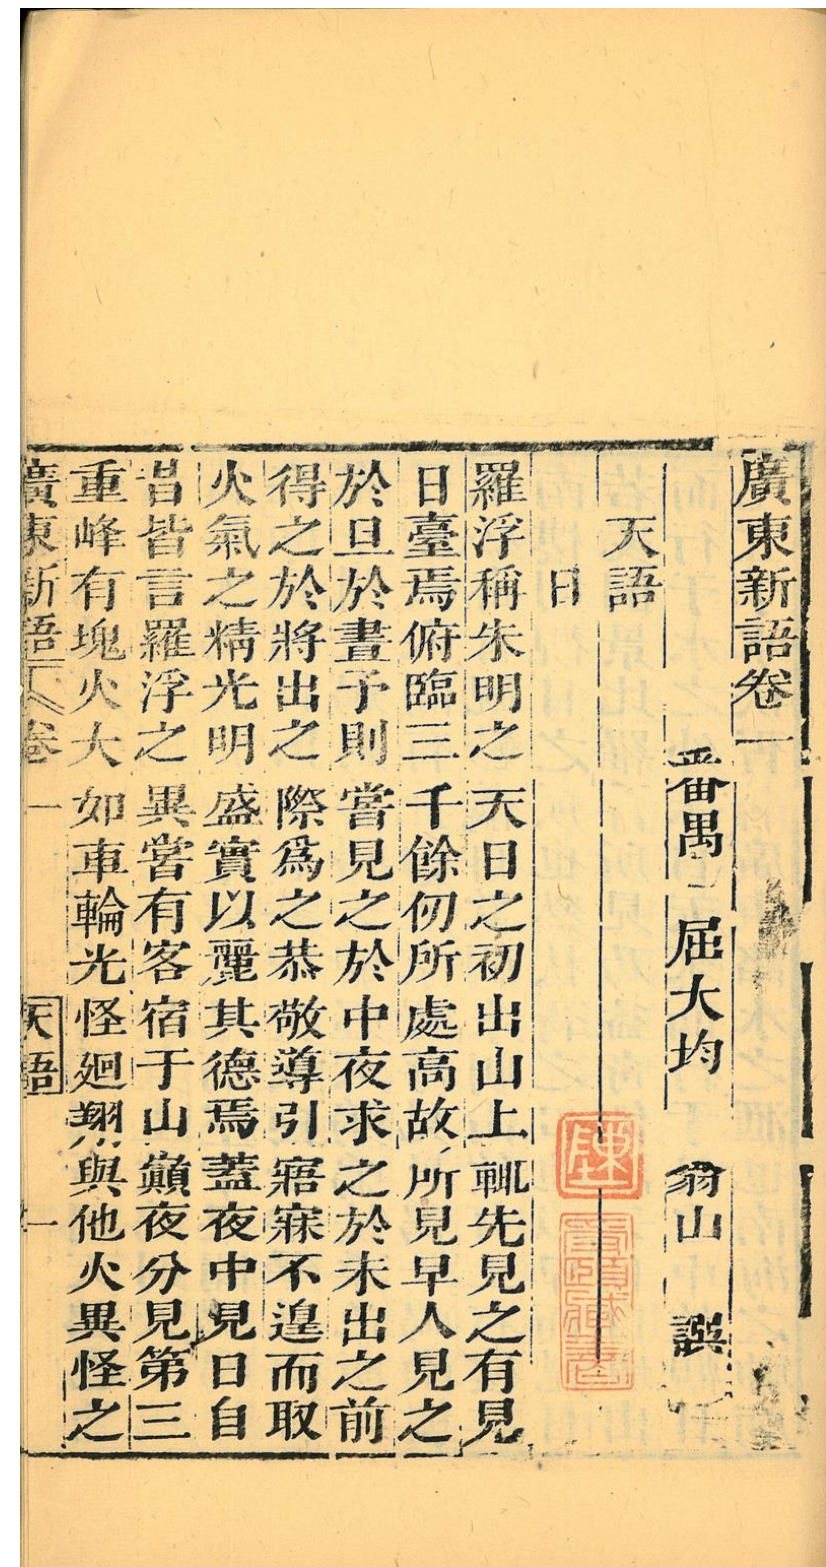 廣東新語卷一
番禺 屈大均 翁山 譔
天語
日
羅浮稱朱明之天日之初出山上輒先見之有見
日臺焉俯臨三千餘仞所處高故所見早人見之
於旦於晝予則嘗見之於中夜求之於未出之前
得之於將出之際爲之恭敬導引寤寐不遑而取
火氣之精光明盛實以麗其德焉蓋夜中見日自
昔皆言羅浮之異嘗有客宿于山巔夜分見第三
重峰有塊火大如車輪光怪廻翔與他火異怪之
廣東新語 卷一 天語 一